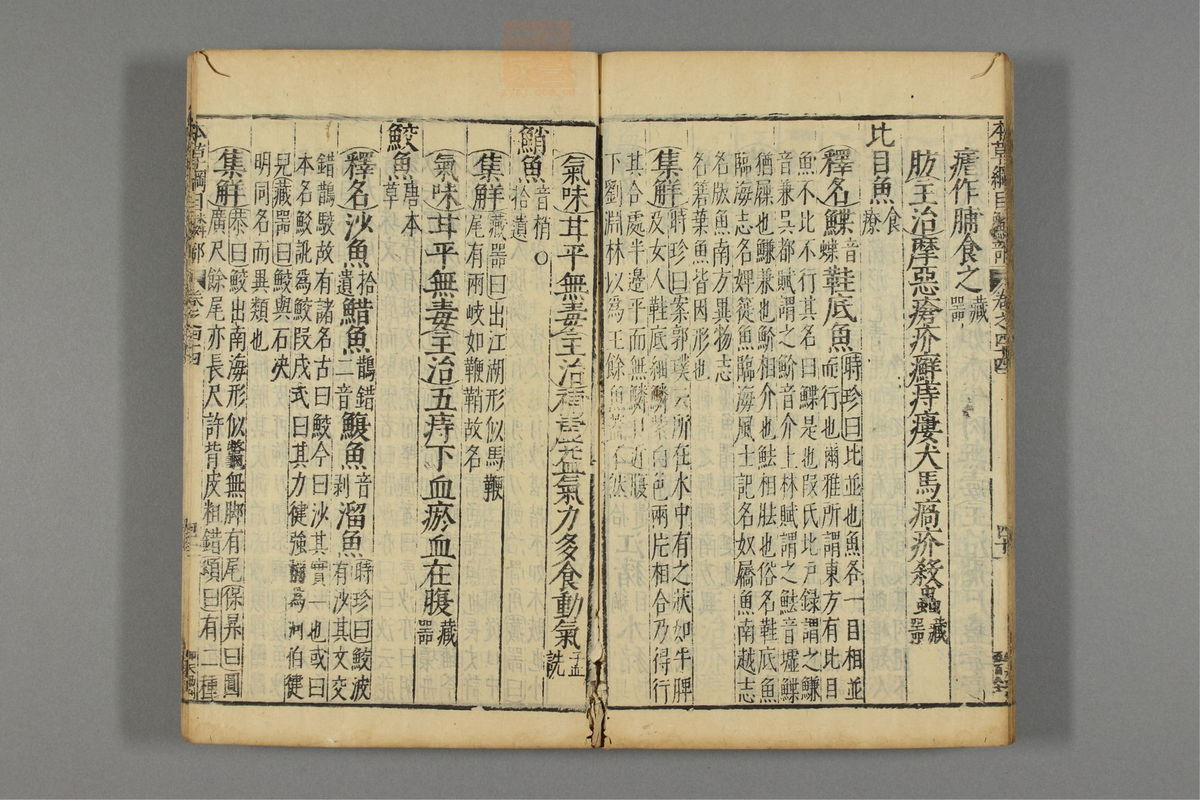 瘧作脯食之藏器
肪主治摩惡瘡疥癬痔瘻犬馬瘑疥殺蟲藏器
比目魚食療
釋名鰈音蝶鞋底魚時珍曰比並也魚各一目相並
而行也爾雅所謂東方有比目
魚不比不行其名曰鰈是也段氏北户録謂之鰜
音兼吳都賦謂之魪音介上林賦謂之魼音墟鰈
猶屧也鰜兼也魪相介也魼相胠也俗名鞋底魚
臨海志名婢簁魚臨海風土記名奴屩魚南越志
名版魚南方異物志
名箬葉魚皆因形也
集解時珍曰案郭璞云所在水中有之狀如牛脾
及女人鞋底細鱗紫白色兩片相合乃得行
其合處半邊平而無鱗口近腹下
劉淵林以爲王餘魚
氣味甘平無毒主治補虛益氣力多食動氣孟詵
鮹魚音梢拾遺
集解藏器曰出江湖形似馬鞭
尾有兩岐如鞭鞘故名
氣味甘平無毒主治五痔下血瘀血在腹藏器
鮫魚唐本草
釋名沙魚拾遺䱜魚鵲錯二音鰒魚音剥溜魚時珍曰鮫波
有沙其文交
錯鵲駁故有諸名古曰鮫今曰沙其實一也或曰
本名鮫訛爲鮫段成式曰其力健強稱為河伯健
兒藏器曰鮫與石决
明同名而異類也
集解恭曰鮫出南海形似鱉無脚有尾保昇曰圓
廣尺餘尾亦長尺許背皮粗錯頌曰有二種